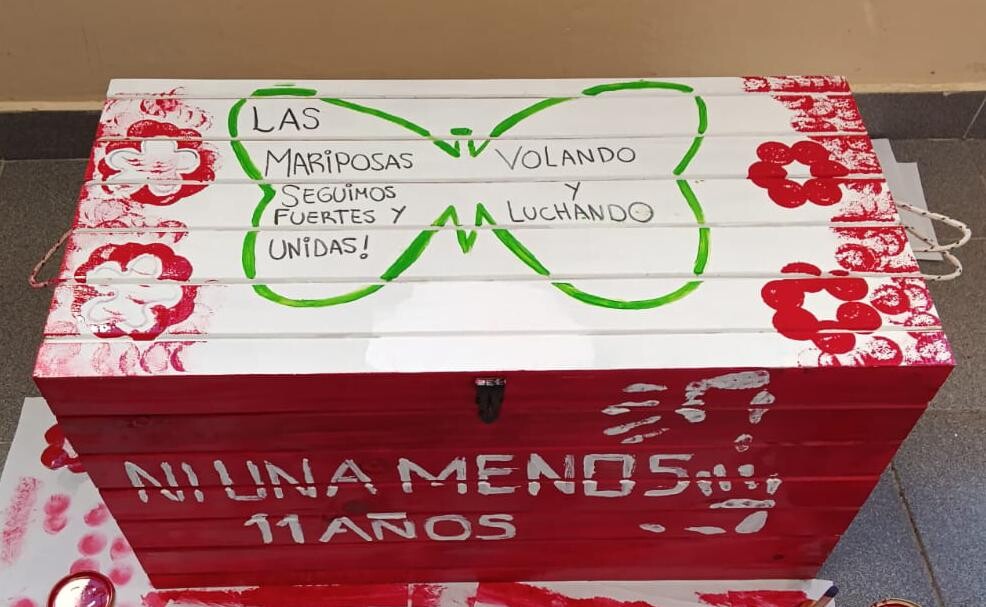 LAS
MARIPOSAS
SEGUIMOS
FUERTES Y
UNIDAS!
VOLANDO
Y
LUCHANDO
NI UNA MENOS...
11 AÑOS